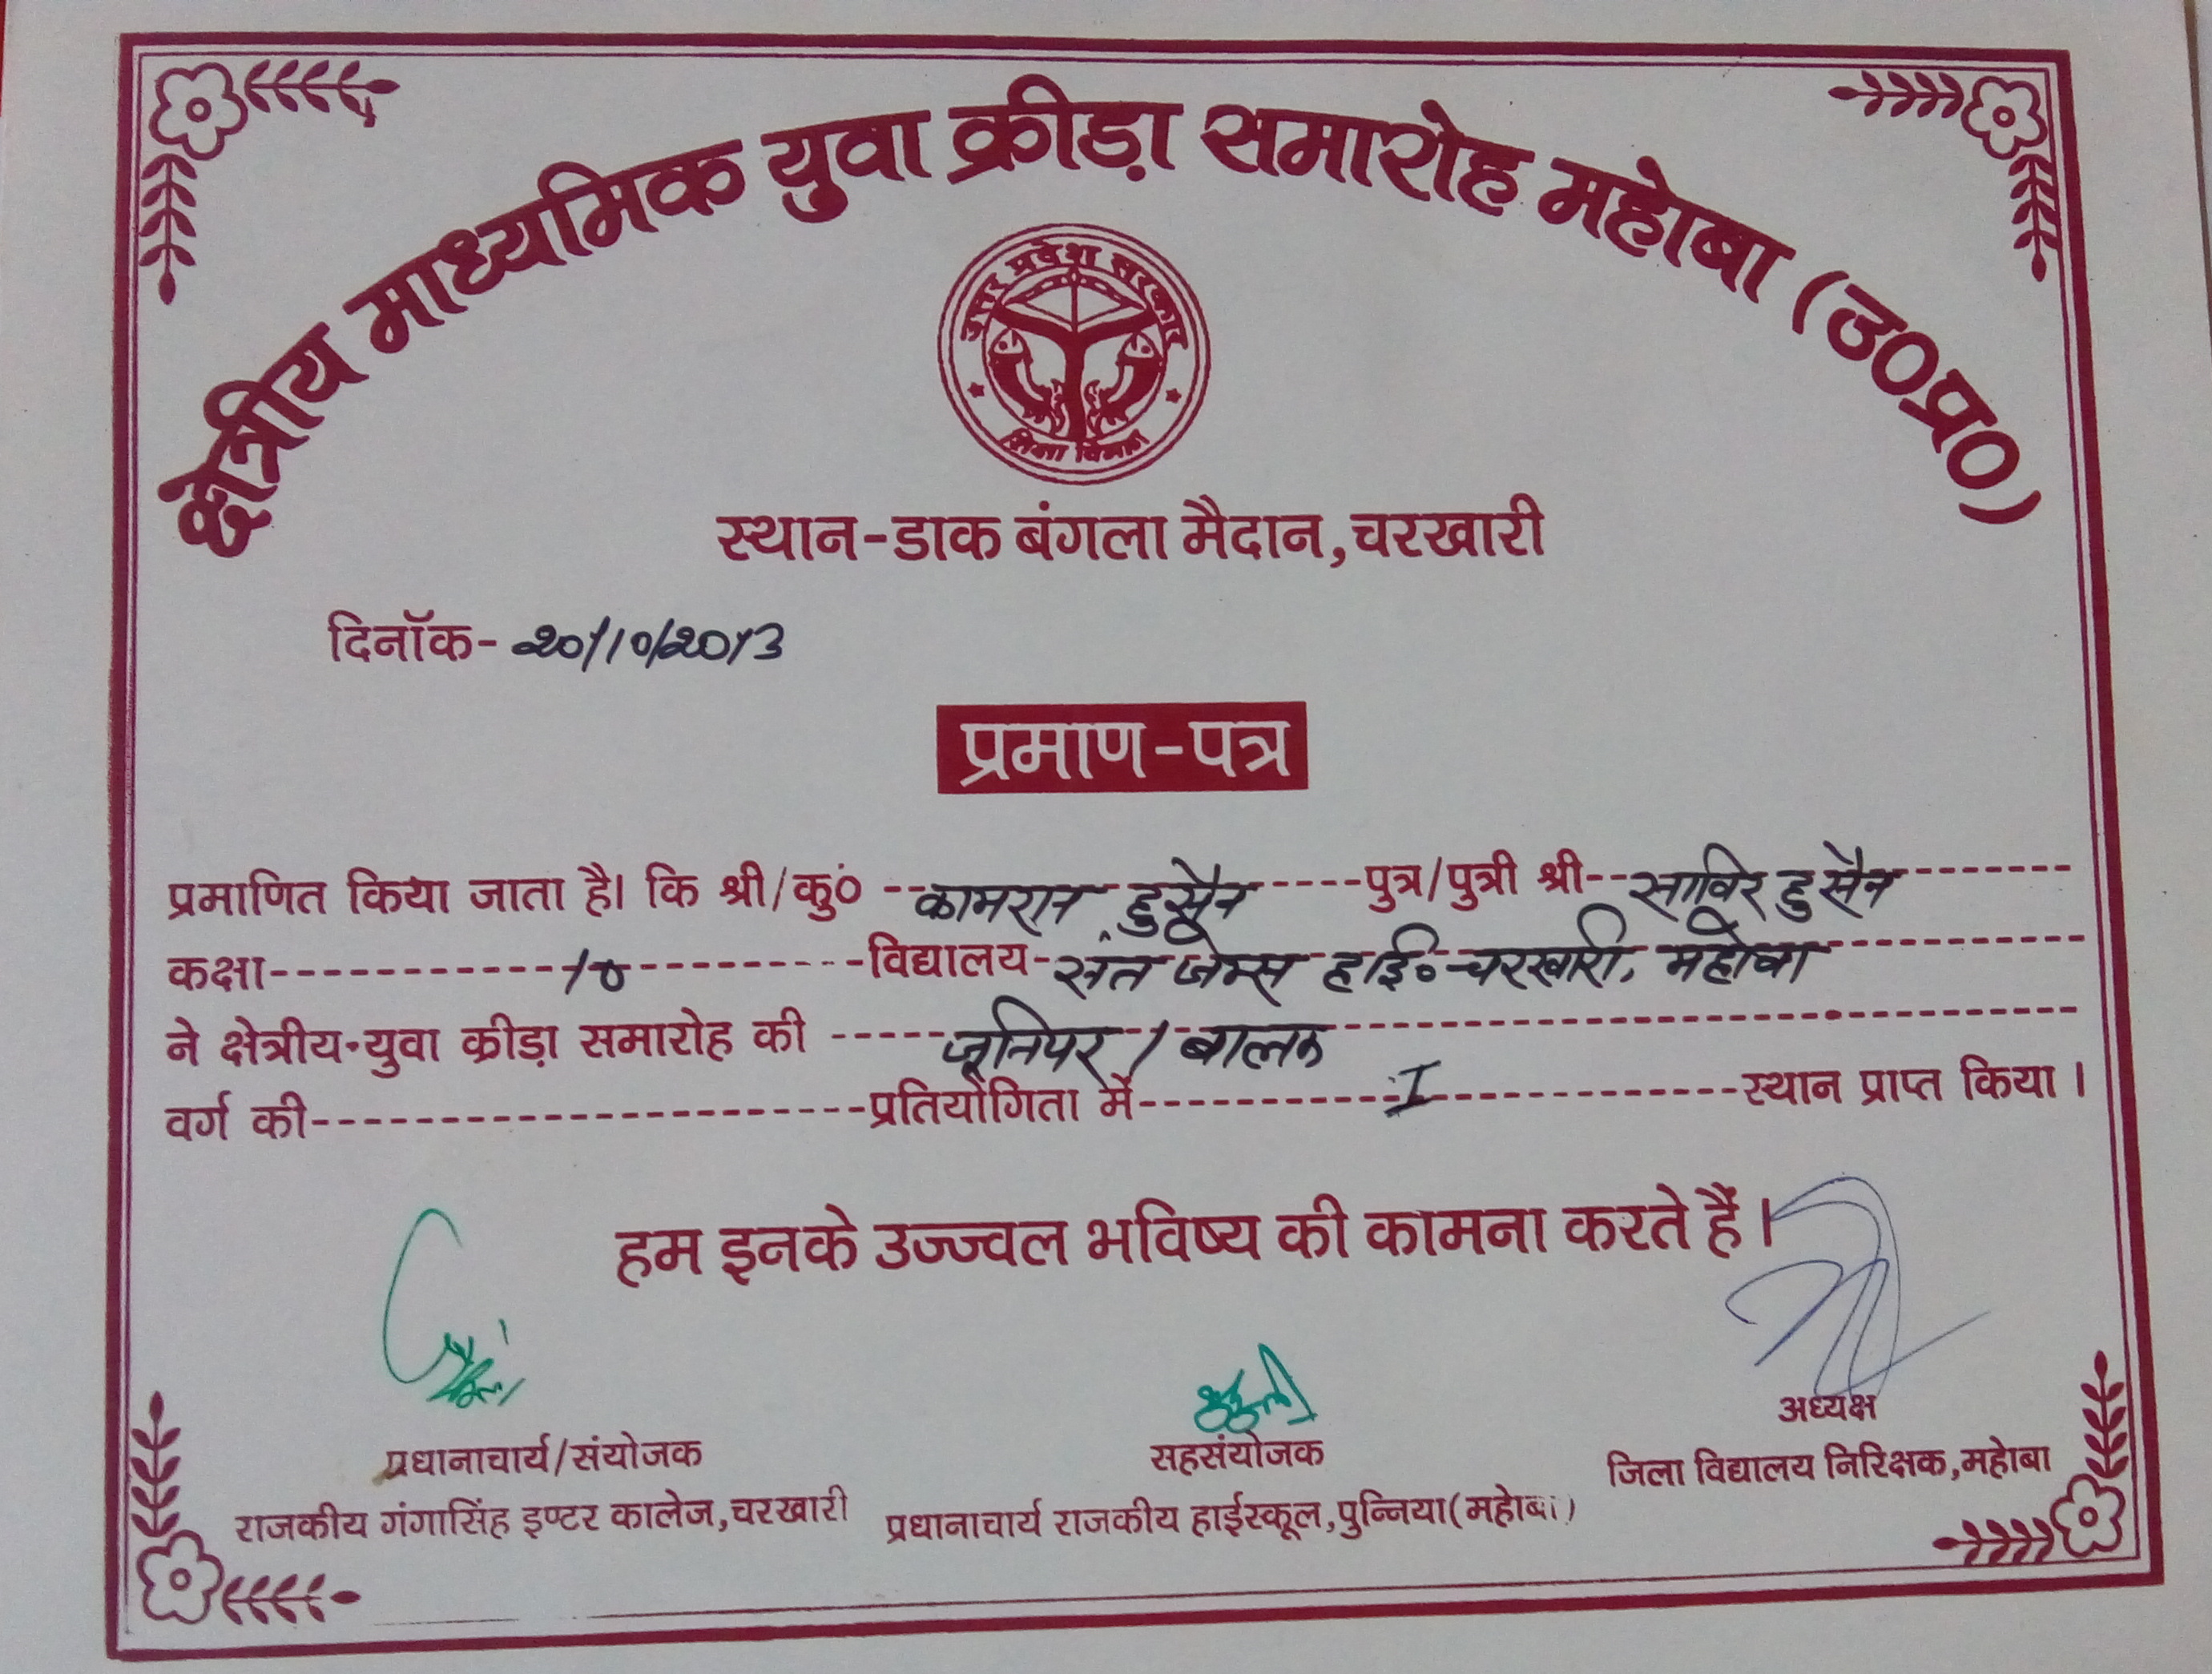 क्षेत्रीय माध्यमिक युवा क्रीड़ा समारोह महोबा (उ०प्र०)
उत्तर प्रदेश सरकार
शिक्षा विभाग
स्थान-डाक बंगला मैदान,चरखारी
दिनॉक- 20/10/2013
प्रमाण-पत्र
प्रमाणित किया जाता है। कि श्री/कुं० कामरान हुसैन पुत्र/पुत्री श्री साबिर हुसैन
कक्षा 10 विद्यालय संत जेम्स हाई० चरखारी, महोबा
ने क्षेत्रीय-युवा क्रीड़ा समारोह की जूनियर / बालक
वर्ग की प्रतियोगिता में I स्थान प्राप्त किया ।
हम इनके उज्ज्वल भविष्य की कामना करते हैं ।
प्रधानाचार्य/संयोजक
राजकीय गंगासिंह इण्टर कालेज,चरखारी
सहसंयोजक
प्रधानाचार्य राजकीय हाईस्कूल,पुन्निया(महोबा)
अध्यक्ष
जिला विद्यालय निरिक्षक,महोबा